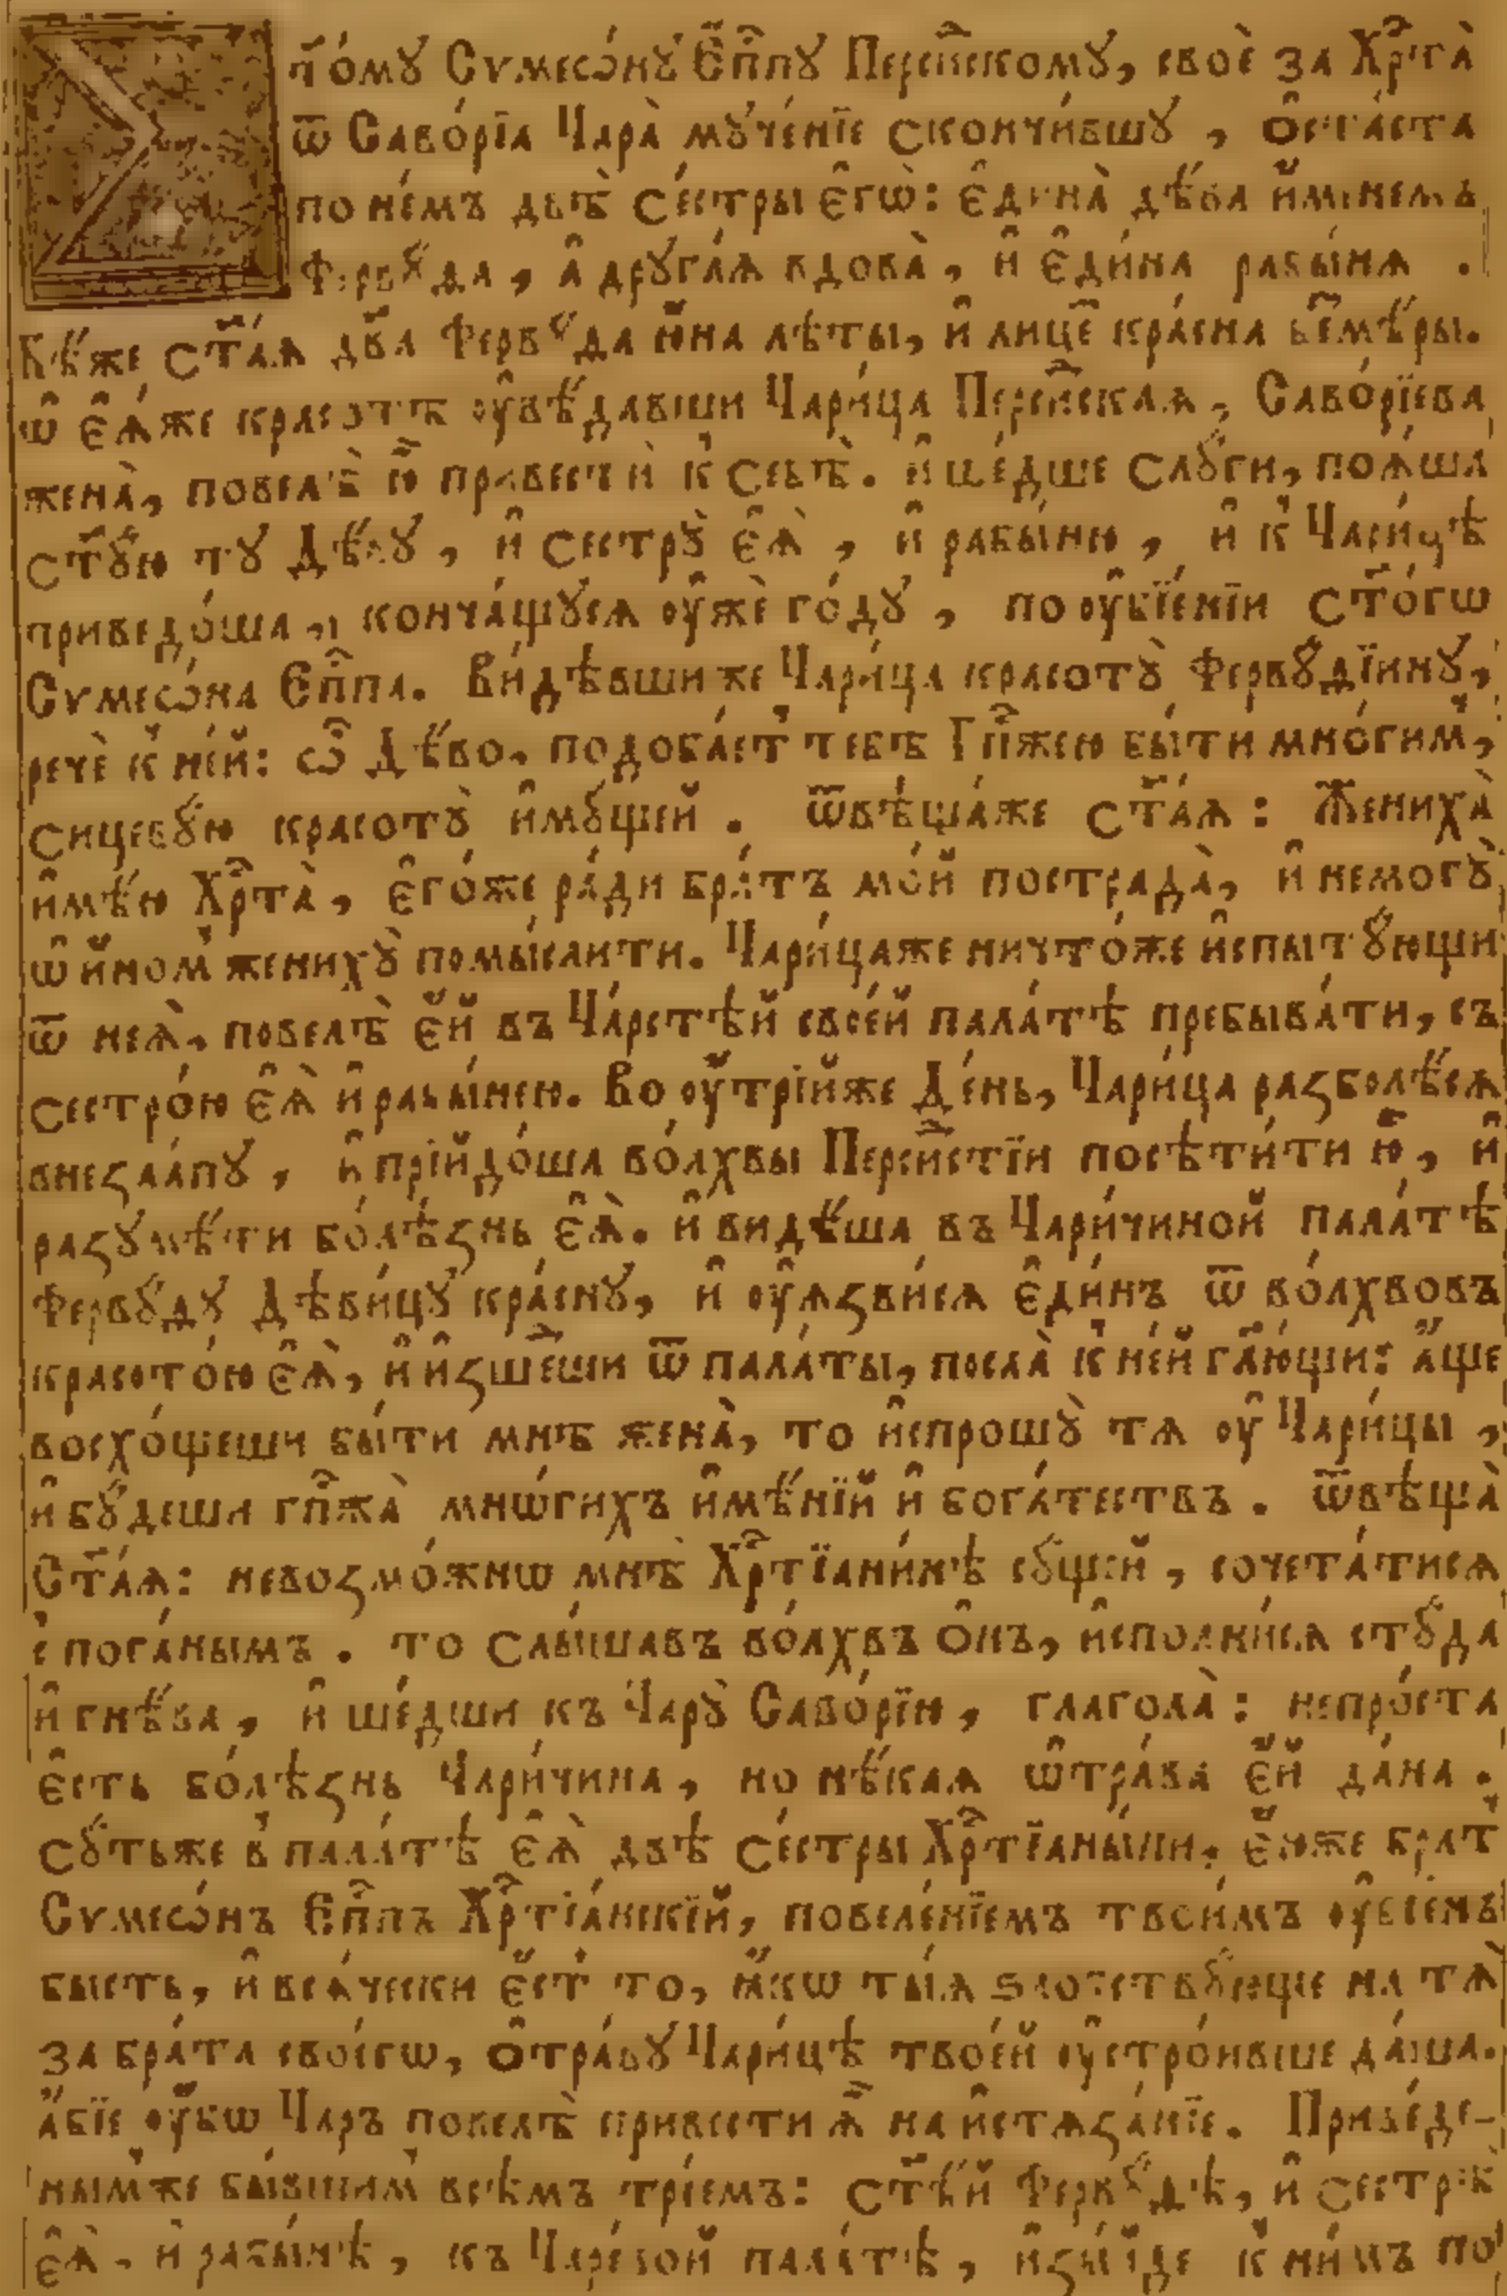 ст҃о́мꙋ Сѵмеѡ́нꙋ Є҆пⷭ҇пꙋ Персⷭ҇скомꙋ, своѐ за Хрⷭ҇та̀
ѿ Саво́рїа Цара̀ мꙋ́ченїе скончи́вшꙋ , ѻ҆ста́ста
по не́мъ двѣ̀ се́стры є҆гѡ̀: є҆дина̀ дѣ́ва и҆́менемъ
Фервꙋ́да , а҆ дрꙋга́ѧ вдова̀ , и҆ є҆ди́на рабы́нѧ .
Бѣ́же ст҃а́ѧ дв҃а Фервꙋ́да ю҆́на лѣ́ты, и҆ лице́ кра́сна беⷥмѣ́ры.
ѡ҆ є҆ѧ́же красотѣ̀ ᲂу҆вѣ́давши Цари́ца Персⷭ҇скаѧ , Саво́рїева
жена̀, повелѣ̀ ю҆̀ привестѝ к̾ себѣ̀. и҆ ше́дше слꙋ́ги, поѧ́ша
ст҃ꙋ́ю тꙋ Дѣ́вꙋ , и҆ сестрꙋ̀ є҆ѧ̀ , и҆ рабы́ню , и҆ к̾ Цари́цѣ
приведо́ша , конча́щꙋсѧ ᲂу҆жѐ го́дꙋ , по ᲂу҆бїе́нїи ст҃о́гѡ
Сѵмеѡ́на Єпⷭ҇па. Ви́дѣвши же Цари́ца красотꙋ̀ Фервꙋ́дїинꙋ,
речѐ к̾ не́й: ѽ Дѣ́во, подоба́ет̾ тебѣ̀ Гпⷭ҇жею бы́ти мно́гим̾,
сицевꙋ́ю красотꙋ̀ и҆мꙋ́щей . ѿвѣща́же ст҃а́ѧ : Жениха̀
и҆мѣ́ю Хрⷭ҇та̀ , є҆го́же ра́ди бра́тъ мо́й пострада̀, и҆ немогꙋ̀
ѡ҆ и҆но́м̾ женихꙋ̀ помы́слити. Цари́цаже ничто́же и҆спытꙋ́ющи
ѿ неѧ̀, повелѣ̀ є҆́й въ Ца́рстѣй свое́й пала́тѣ пребыва́ти, съ
сестро́ю є҆ѧ̀ и҆ рабы́нею. Во ᲂу҆́трїйже Де́нь, Цари́ца разболѣ́сѧ
внезаа́пꙋ , и҆ прїйдо́ша во́лхвы Персⷭ҇стїи посѣти́ти ю҆̀ , и҆
разꙋмѣ́ти болѣ́знь є҆ѧ̀. и҆ видѣ́ша въ Цари́чиной пала́тѣ
Фервꙋ́дꙋ Дѣви́цꙋ кра́снꙋ, и҆ ᲂу҆ѧзви́сѧ є҆ди́нъ ѿ во́лхвовъ
красото́ю є҆ѧ̀, и҆ и҆зше́дши ѿ пала́ты, посла̀ к̾ не́й гл҃ю́щи: а҆́ще
восхо́щеши бы́ти мнѣ̀ жена̀, то и҆спрошꙋ̀ тѧ ᲂу҆ Цари́цы ,
и҆ бꙋ́деши гпⷭ҇жа̀ мнѡ́гихъ и҆мѣ́нїй и҆ бога́тествъ . ѿвѣща̀
Ст҃а́ѧ: невозмо́жнѡ мнѣ̀ Хрⷭ҇тїани́нѣ сꙋ́щей , сочета́тисѧ
с̾ пога́нымъ . то слы́шавъ во́лхвъ ѻ҆́нъ, и҆спо́лнисѧ стꙋ́да
и҆ гнѣ́ва , и҆ ше́дши къ Царꙋ̀ Саво́рїю , глагола̀ : непро́ста
є҆́сть болѣ́знь Цари́чина , но нѣ́каѧ ѡ҆тра́ва є҆́й дана̀ .
Сꙋ́тьже в̾ пала́тѣ є҆ѧ̀ двѣ̀ се́стры Хрⷭ҇тїаны́ни, є҆́юже брат̾
Сѵмеѡ́нъ Єпⷭ҇пъ Хрⷭ҇тїа́нскїй, повеле́нїемъ твои́мъ ᲂу҆бїе́нъ
бысть, и҆ всѧ́чески є҆́ст̾ то, ꙗ҆́кѡ ты́ѧ ѕлодѣтвꙋ́юще на тѧ̀
за бра́та своегѡ̀, ѻ҆тра́вꙋ Цари́цѣ твое́й ᲂу҆стро́ивше да́ша.
а҆́бїе ᲂу҆́бѡ Царъ повелѣ̀ привести ѧ҆̀ на и҆стѧза́нїе. Приве́де-
нымже бы́вшим̾ всѣ́мъ трїе́мъ: ст҃ѣ́й Фервꙋ́дѣ, и҆ сестрѣ̀
є҆ѧ̀ , и҆ рабы́нѣ , къ Царе́вой пала́тѣ , и҆зы́йде к̾ ни́мъ по